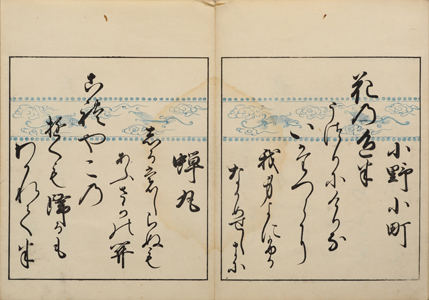 小野小町
花乃色は
うつりにけりな
いたつらに
我身よにふる
なかめせしまに
蟬丸
これやこの
行くも帰るも
わかれては
しるもしらぬも
あふさかの関